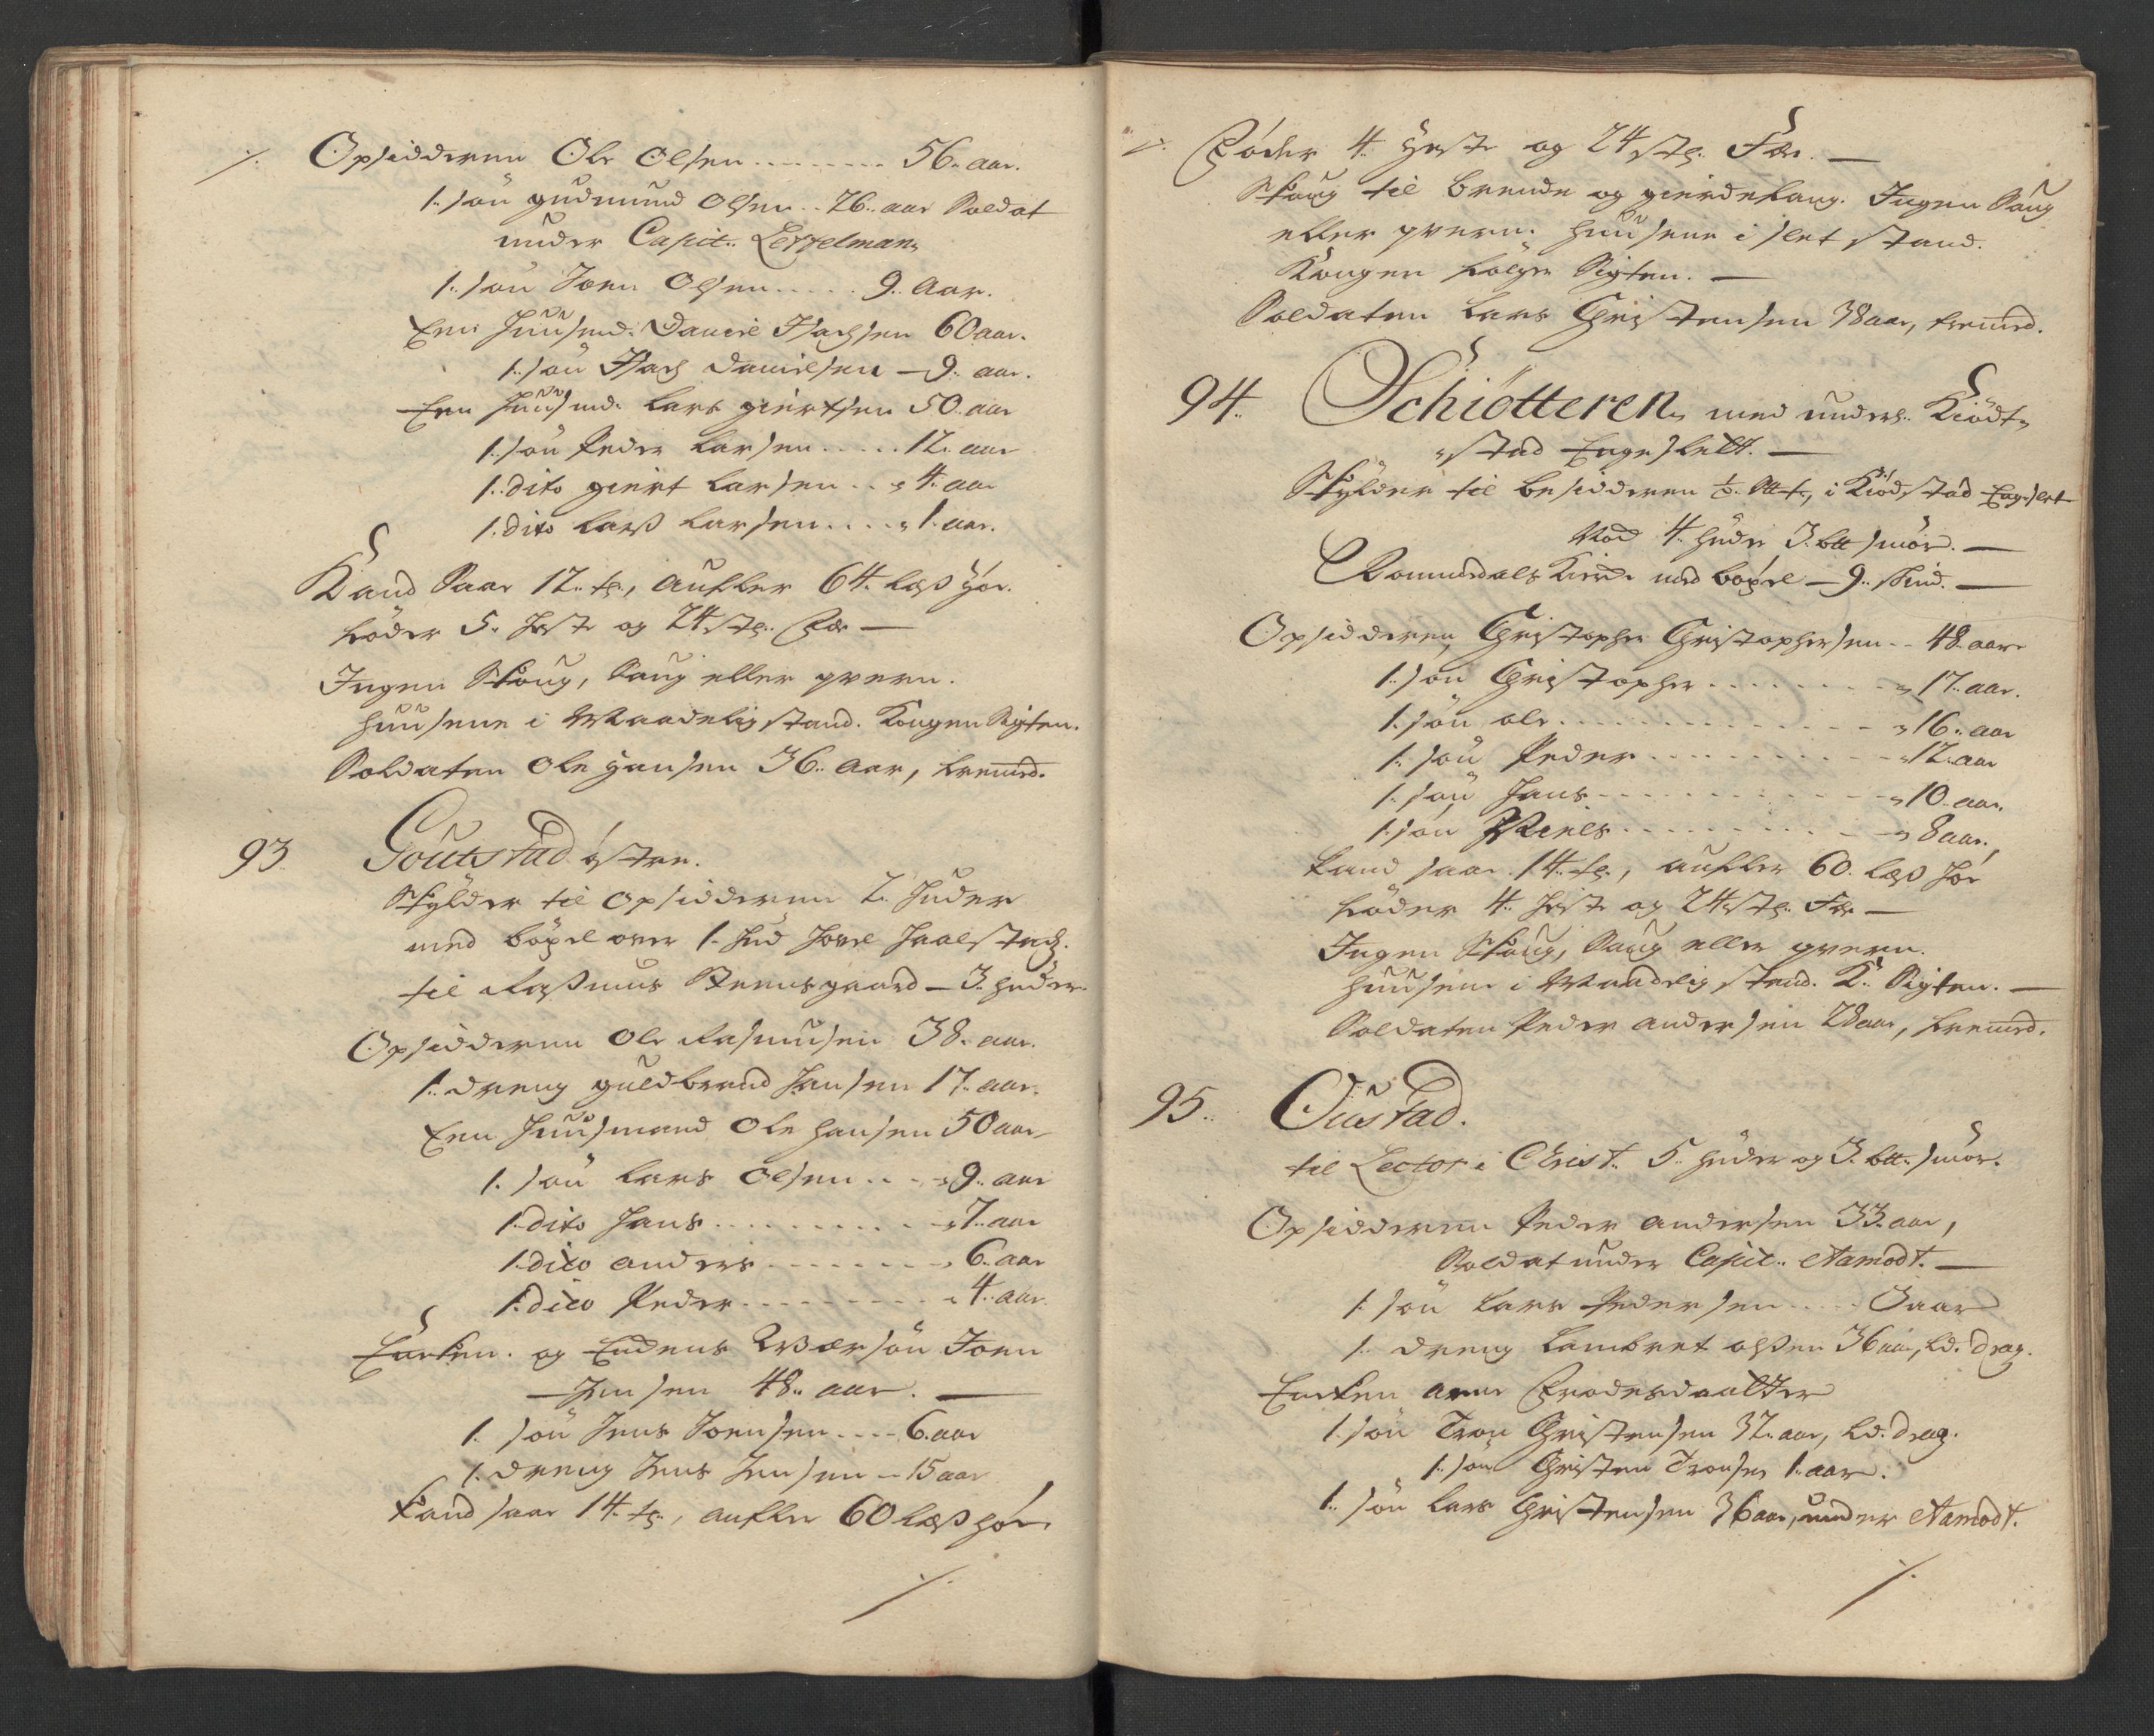 ⁒ Opsidderen Ole Olsen ........ 56. aar.
1. søn gudmund Olsen .. 26. aar Soldat
under Capit. Lesselman
1. søn Joen Olsen ..... 9. Aar.
Een huusmd. Daniel Isachsen 60 aar.
1. søn Isach Danielsen — 9. aar.
Een huusmd. Lars giertsen 50. aar
1. søn Peder Larsen ..... 12. aar
1. dito giert Larsen ... 4. aar
1. dito Larß Larsen .... 1. aar.
Kand Saae 12. tr., aufler 64. Læß høe.
føder 5. heste og 24 stk. Fæe —
Ingen Skoug, Saug eller qvern.
huusene i Maadelig stand. Kongen Sigten.
Soldaten Ole Hansen 36. Aar, fremed.
93. Goutstad østre.
Skylder til Opsidderen 2. huder
med bøxel over 1. hud
til Raßmus Steensgaard — 3. huder.
Opsidderen Ole Rasmusen 38. aar.
1. dreng guldbrand Hansen 17. aar.
Een huusmand Ole Hansen 50 aar
1. søn Lars Olsen ... 9. aar
1. dito Hans .......... 7. aar
1. dito anders ........ 6. aar
1. dito Peder ......... 4. aar
Enken. og Endens Værsøn Joen
Jensen 48. aar. —
1. søn Jens Joensen .... 6. aar
1. dreng Jens Jensen — 15 aar
Kand saae 14. tr., aufler 60 Læß høe
⁒
⁒ Føder 4. heste og 24 stk. Fæe. —
Skoug til brende og gierdefang. Ingen Saug
eller qvern. huusene i slet stand.
Kongen følger Sigten. —
Soldaten Lars Christensen 38 aar, fremed.
94. Schiøtteren med unders. Kiødt-
stad Engeslett. —
Skylder til besidderen i Kiødstad Engeslet
4. huder 3. btt smør. —
Romundals Kirke med boxel — 9. skind. —
Opsidderen Christopher Christophersen .. 48. aar
1. søn Christopher ....... 17. aar.
1. søn ole ............. 16. aar
1. søn Peder .......... 12. aar
1. søn Hans ........... 10. aar.
1. søn Niels .......... 8 aar.
Kand saae 14. tr., aufler 60. Læß høe
føder 4. heste og 24 stk. Fæe —
Ingen Skoug, Saug eller qvern.
huusene i Maadelig stand. K. Sigten. —
Soldaten Peder andersen 28 aar, fremed.
95. Oustad.
til Lector i Christ. 5. huder og 3. btt. smør.
Opsidderen Peder andersen 33. aar,
Soldat under Capit. Aamodt. —
1. søn Lars Pedersen ..... 3 aar
1. dreng Lambret olßen 36 aar, Ld. drag.
Enken arne Frodesdaatter
1. søn Tron Christensen 32. aar, Ld. drag.
1. søn Christen Tronsen 1. aar.
1. søn Lars Christensen 36 aar, under Aamodt.
⁒